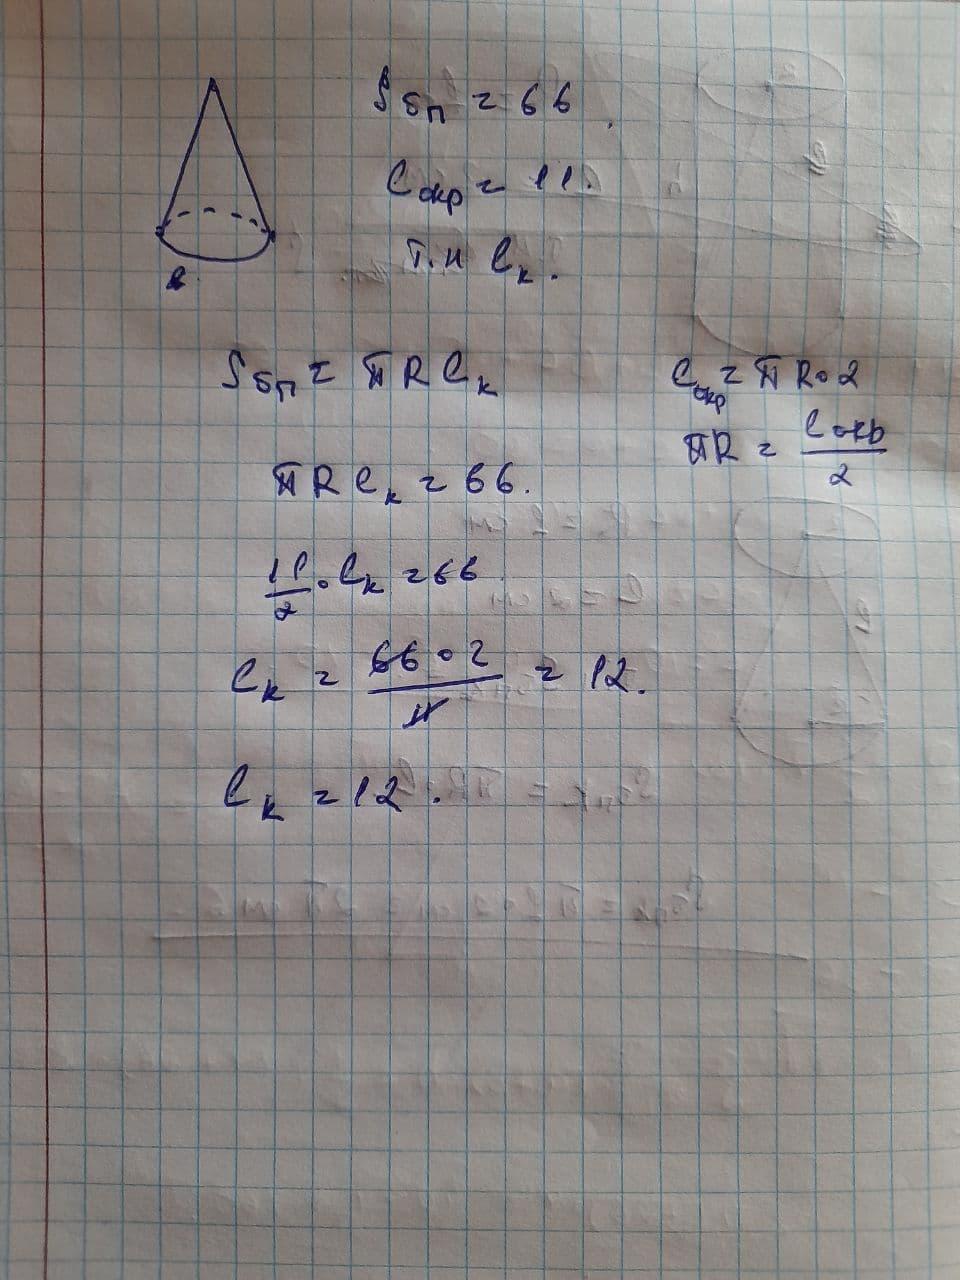 Sбп = 66
Cокр = 11.
lк.
Sбп = πRlк
Cокр = πR·2
πR = Cокр/2
πRlк = 66.
11/2 · lк = 66
lк = 66·2/11 = 12.
lк = 12.